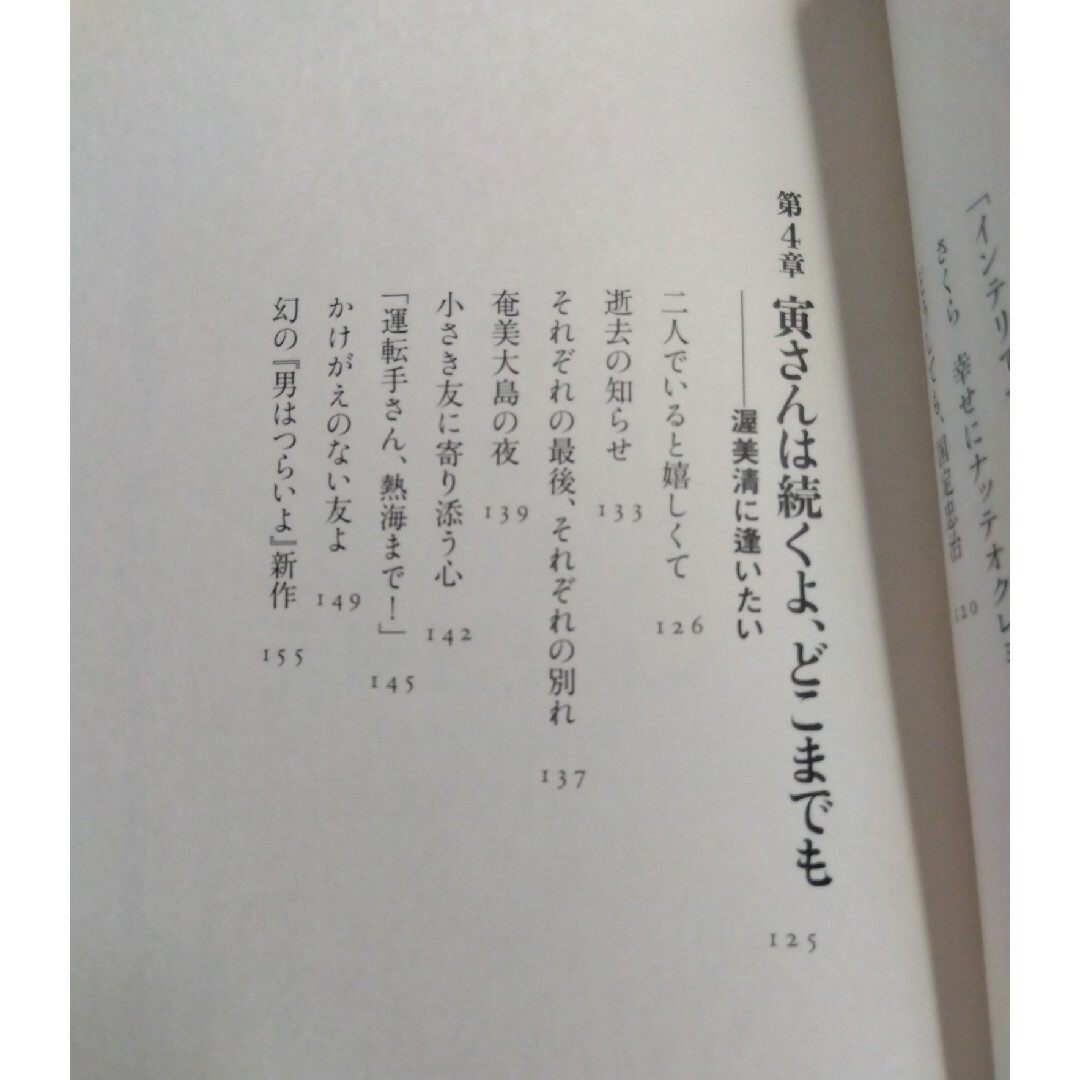 「インテリで
さくら 幸せにナッテオクレヨ
どうしても、国定忠治
120
第4章 寅さんは続くよ、どこまでも
125
――渥美清に逢いたい
二人でいると嬉しくて
126
逝去の知らせ
133
それぞれの最後、それぞれの別れ
137
奄美大島の夜
139
小さき友に寄り添う心
142
「運転手さん、熱海まで!」
145
かけがえのない友よ
149
幻の『男はつらいよ』新作
155